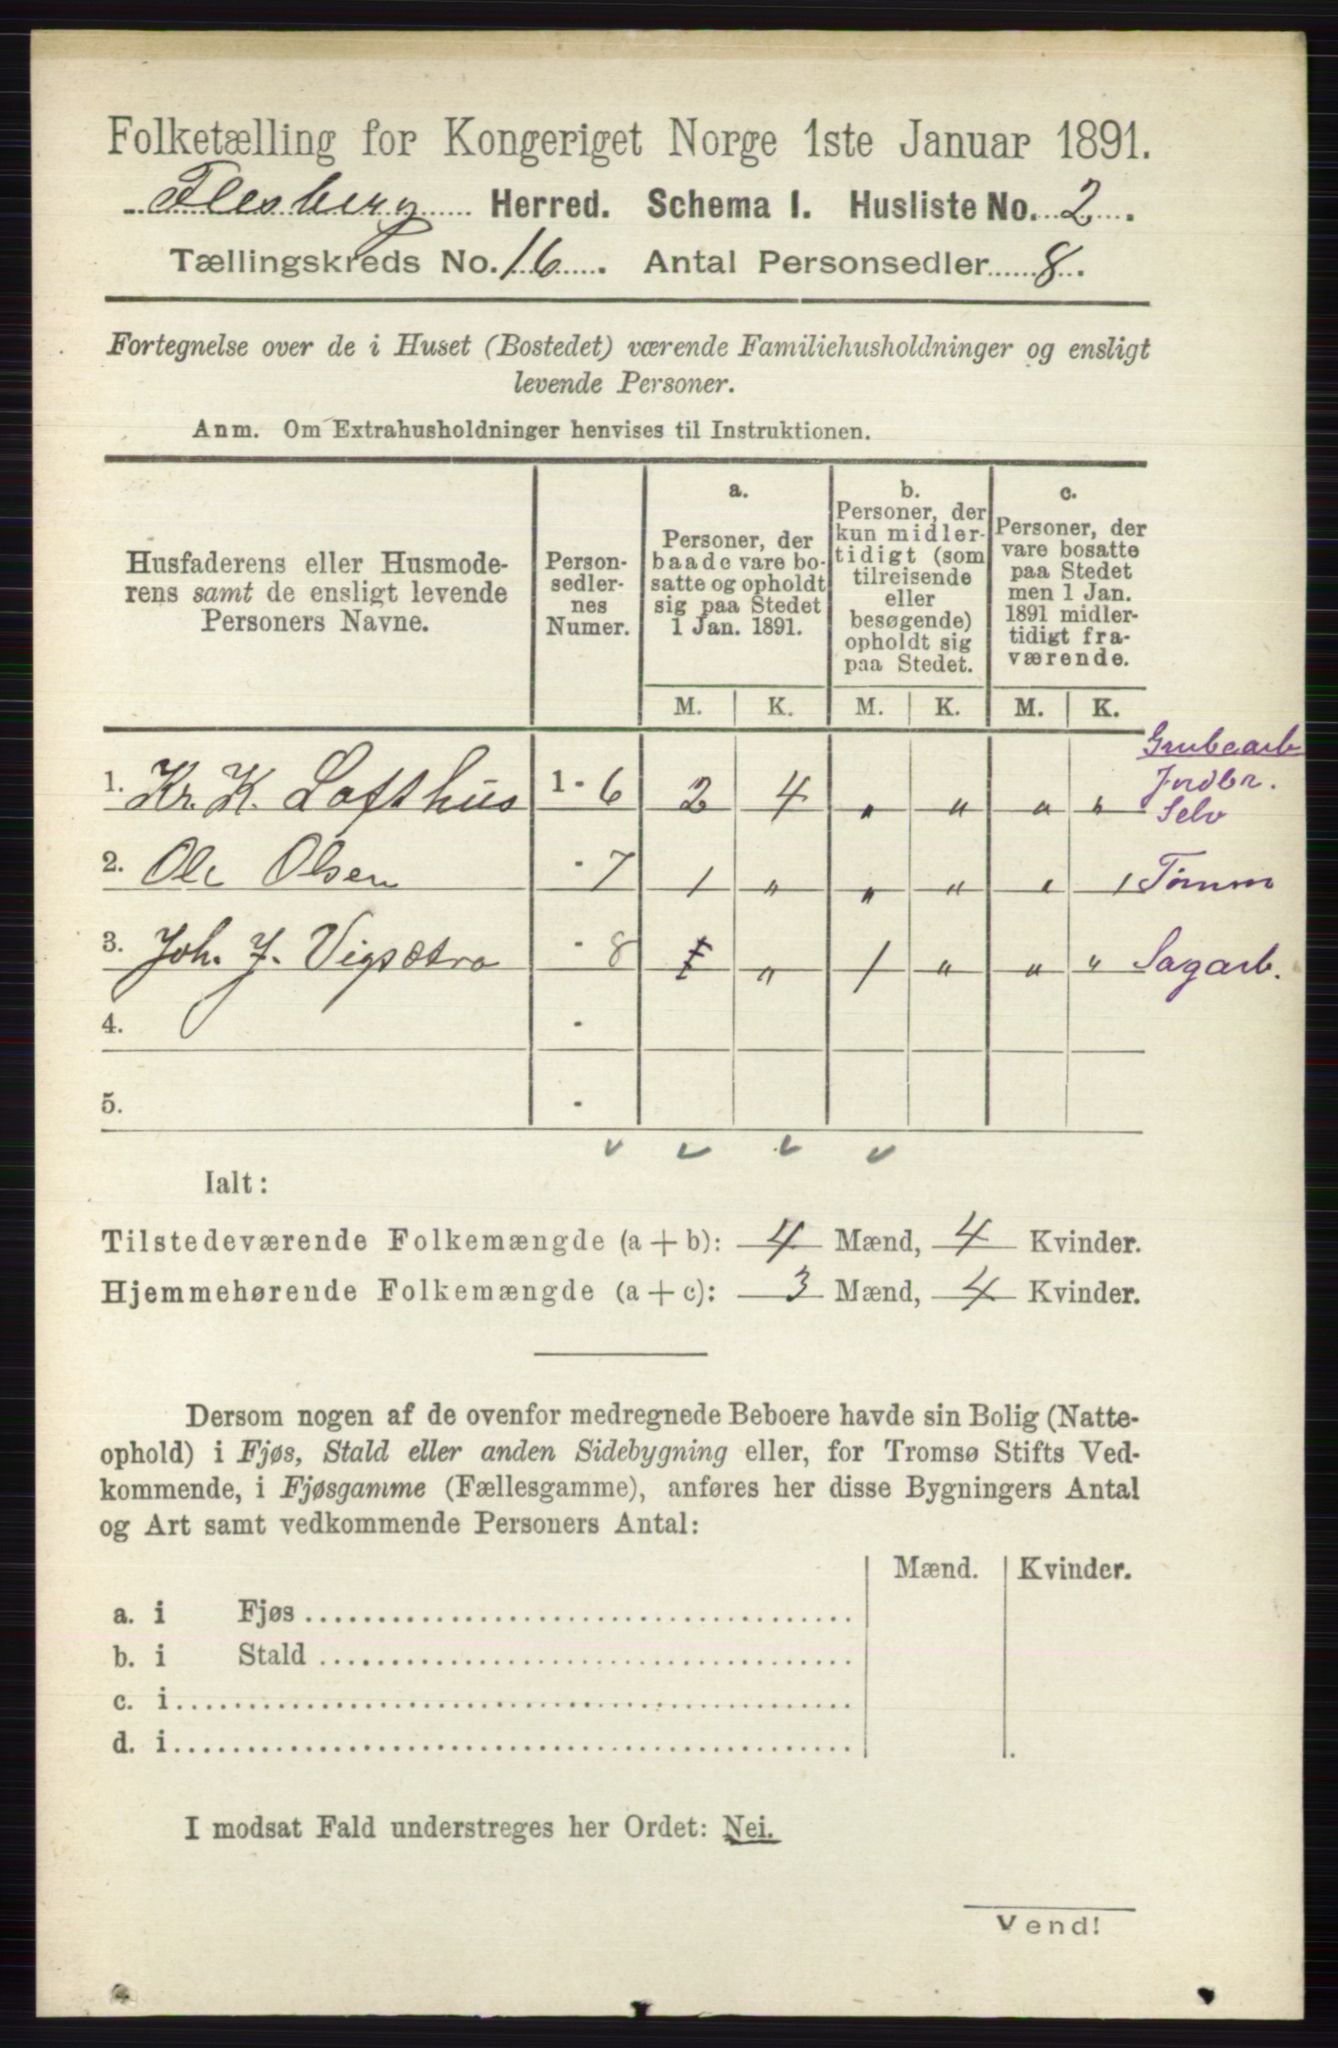 Folketælling for Kongeriget Norge 1ste Januar 1891.
Flesberg Herred. Schema I. Husliste No. 2.
Tællingskreds No. 16. Antal Personsedler 8.
Fortegnelse over de i Huset (Bostedet) værende Familiehusholdninger og ensligt
levende Personer.
Anm. Om Extrahusholdninger henvises til Instruktionen.
Husfaderens eller Husmode-
rens samt de ensligt levende
Personers Navne.
Person-
sedler-
nes
Numer.
a.
Personer, der
baade vare bo-
satte og opholdt
sig paa Stedet
1 Jan. 1891.
b.
Personer, der
kun midler-
tidigt (som
tilreisende
eller
besøgende)
opholdt sig
paa Stedet.
c.
Personer, der
vare bosatte
paa Stedet
men 1 Jan.
1891 midler-
tidigt fra-
værende.
M. K. M. K. M. K.
Grubearb
1. Kr. K. Lofthus 1 - 6 2 4 „ „ „ „ Indbr.
Selv
2. Ole Olsen - 7 1 „ „ „ „ Tømm
3. Joh. J. Vigsætra - 8 1 „ 1 „ „ „ Sagarb.
4. -
5. -
Ialt:
Tilstedeværende Folkemængde (a + b): 4 Mænd, 4 Kvinder.
Hjemmehørende Folkemængde (a + c): 3 Mænd, 4 Kvinder.
Dersom nogen af de ovenfor medregnede Beboere havde sin Bolig (Natte-
ophold) i Fjøs, Stald eller anden Sidebygning eller, for Tromsø Stifts Ved-
kommende, i Fjøsgamme (Fællesgamme), anføres her disse Bygningers Antal
og Art samt vedkommende Personers Antal:
Mænd. Kvinder.
a. i Fjøs
b. i Stald
c. i
d. i
I modsat Fald understreges her Ordet: Nei.
Vend!